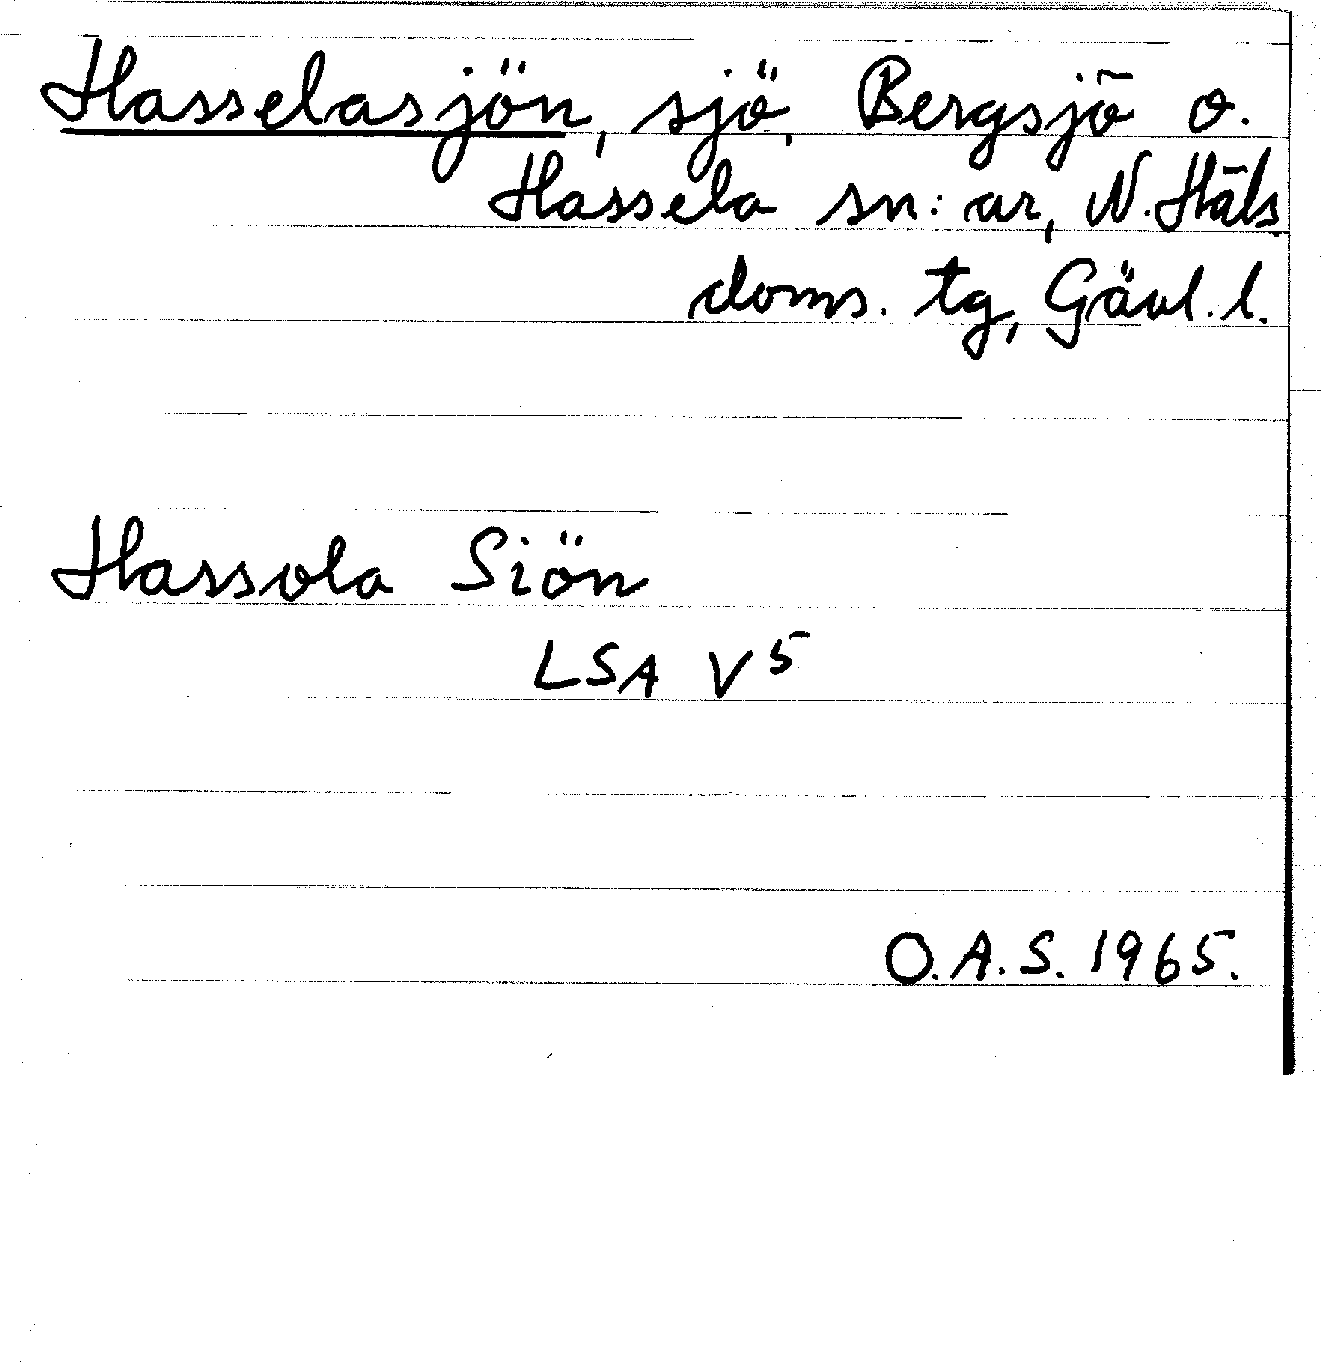 Hasselasjön, sjö, Bergsjö o.
Hassela sn:ar, N. Häls.
doms. tg, Gävl. l.
Hassola Siön
LSA V5
O.A.S. 1965.